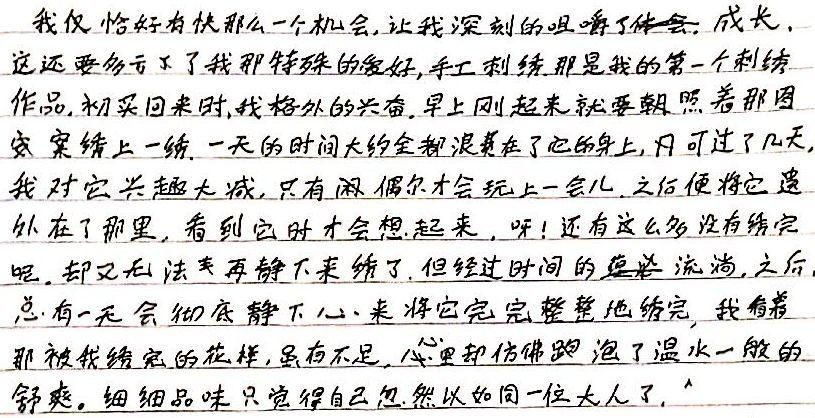 我仅恰好有快那么一个机会,让我深刻的咀嚼了体会.成长,
这还要多亏了我那特殊的爱好,手工刺绣那是我的第一个刺绣
作品,初买回来时,我格外的兴奋.早上刚起来就要朝照着那图
案案绣上一绣.一天的时间大约全都浪费在了它的身上,月可过了几天,
我对它兴趣大减,只有闲偶尔才会玩上一会儿.之后便将它遗
外在了那里,看到它时才会想起来.呀!还有这么多没有绣完
呢.却又无法再静下来绣了.但经过时间的流淌,之后,
总有一天会彻底静下心来将它完完整整地绣完,我看着
那被我绣完的花样,虽有不足,心里却仿佛跑泡了温水一般的
舒爽。细细品味只觉得自己忽然以如同一位大人了.